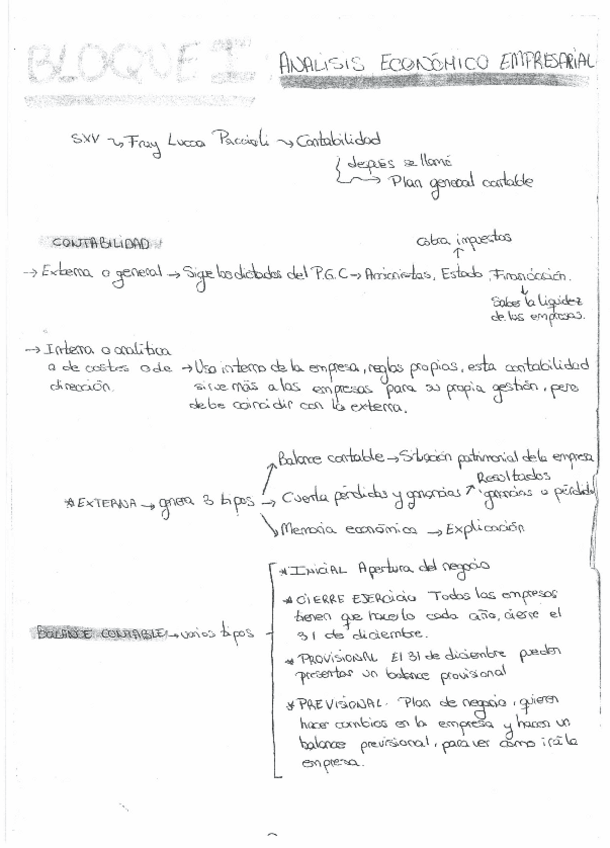 BLOQUE I
ANALISIS ECONÓMICO EMPRESARIAL
SXV → Fray Lucca Paccioli → Contabilidad
después se llamó
→ Plan general contable
CONTABILIDAD
cobra impuestos
↑
→ Externa o general → Sigue los dictados del P.G.C → Accionistas, Estado, Financiación.
↓
Saber la liquidez
de las empresas.
→ Interna o analítica
o de costes o de → Uso interno de la empresa, reglas propias, esta contabilidad
dirección. sirve más a las empresas para su propia gestión, pero
debe coincidir con la externa.
Balance contable → Situación patrimonial de la empresa
Resultados
* EXTERNA → genera 3 tipos → Cuenta pérdidas y ganancias ↗ ganancias o pérdidas
Memoria económica → Explicación
* INICIAL Apertura del negocio
* CIERRE EJERCICIO Todas las empresas
tienen que hacerlo cada año, cierre el
31 de diciembre.
BALANCE CONTABLE → varios tipos
* PROVISIONAL El 31 de diciembre pueden
presentar un balance provisional
* PREVISIONAL. Plan de negocio, quieren
hacer cambios en la empresa y hacen un
balance previsional, para ver cómo irá la
empresa.